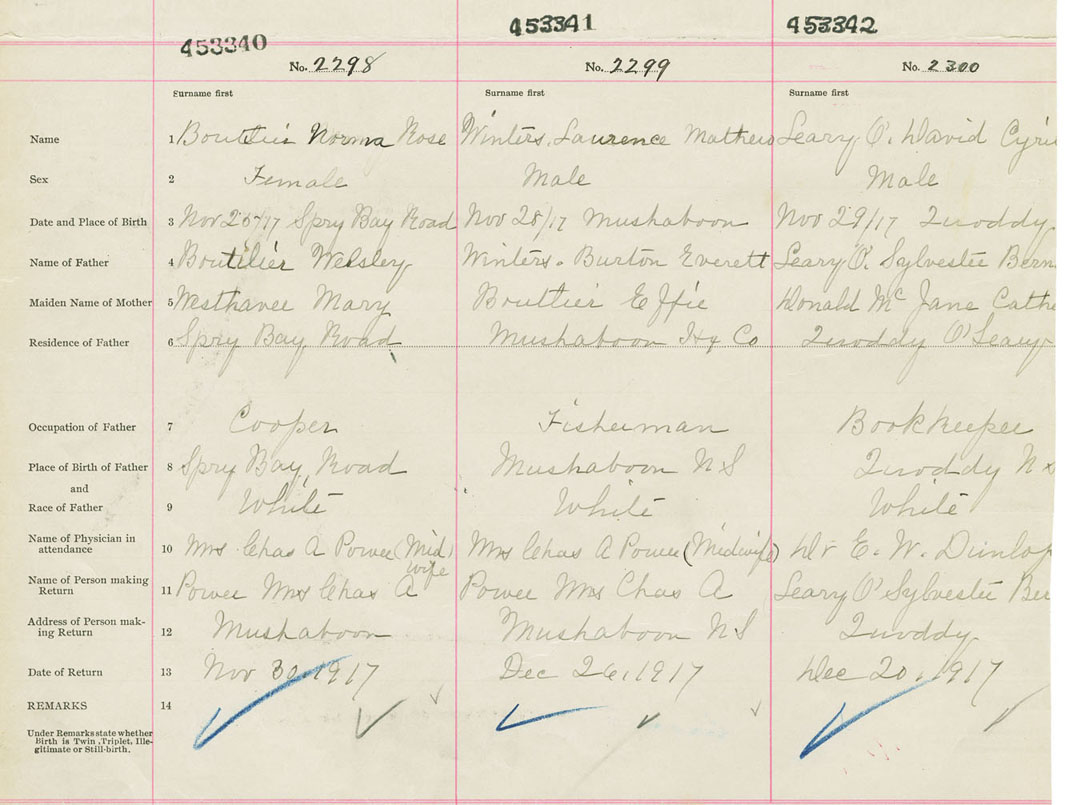 453340 453341 453342
No. 2298 No. 2299 No. 2300
Surname first Surname first Surname first
Name 1 Boutilier Norma Rose Winters, Laurence Mathew Leary O'. David Cyri
Sex 2 Female Male Male
Date and Place of Birth 3 Nov 25/17 Spry Bay Road Nov 28/17 Mushaboon Nov 29/17 Quoddy
Name of Father 4 Boutilier Welsley Winters. Burton Everett Leary O'. Sylvester Bern
Maiden Name of Mother 5 Westhaver Mary Bouttier Effie Donald Mc Jane Cathe
Residence of Father 6 Spry Bay Road Mushaboon Hx Co Quoddy O'Leary
Occupation of Father 7 Cooper Fisherman Bookkeeper
Place of Birth of Father 8 Spry Bay, Road Mushaboon N S Quoddy N S
and
Race of Father 9 White White White
Name of Physician in
attendance 10 Mrs Chas A Power (Mid Mrs Chas A Power (Midwife) Dr E. W. Dunlop
wife
Name of Person making
Return 11 Power Mrs Chas A Power Mrs Chas A Leary O' Sylvester Ber
Address of Person mak-
ing Return 12 Mushaboon Mushaboon N S Quoddy
Date of Return 13 Nov 30, 1917 Dec 26, 1917 Dec 20, 1917
REMARKS 14
Under Remarks state whether
Birth is Twin, Triplet, Ille-
gitimate or Still-birth.